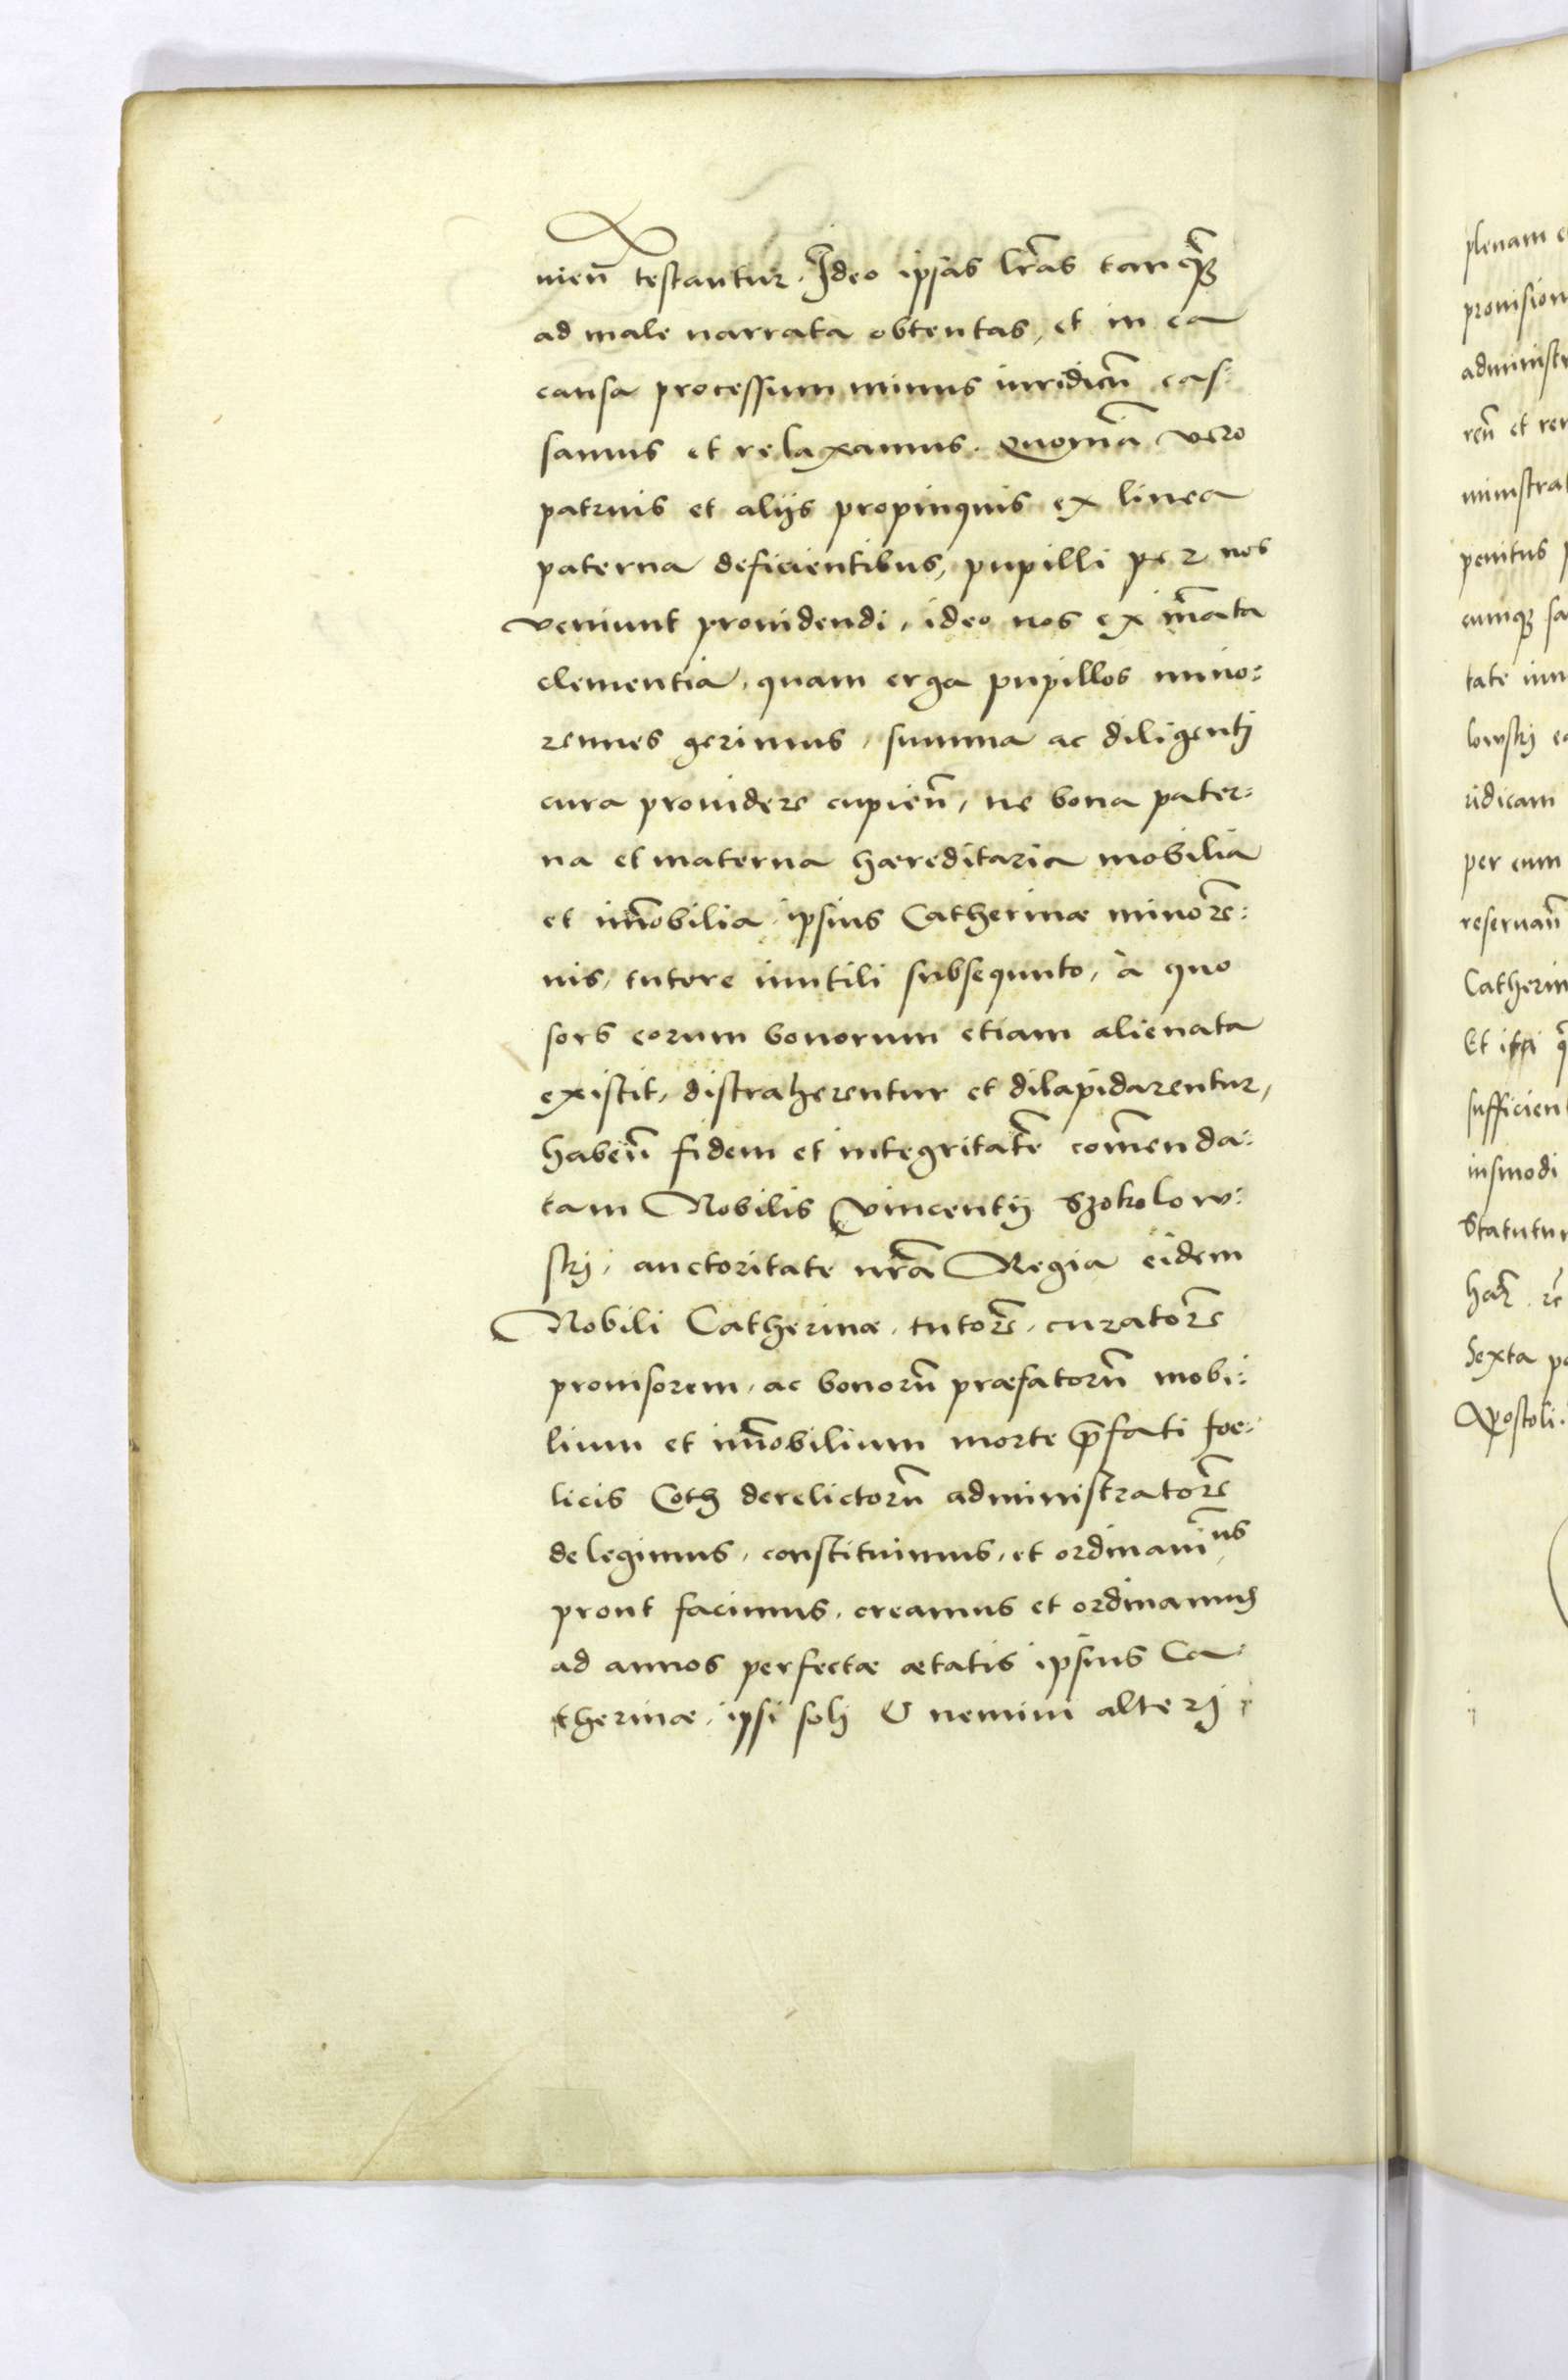 nien̄ testantur. Ideo ipsas lr̄as tanq̄ꝫ
ad male narrata obtentas, et in ea
causa processum minus iuridicū cas:
samus et relaxamus. Quoniā vero
patruis et alijs propinquis ex linea
paterna deficientibus, pupilli per nos
veniunt prouidendi, ideo nos ex īnata
clementia, quam erga pupillos mino:
rennes gerimus, summa ac diligentj
cura prouidere cupien̄, ne bona pater:
na et materna haereditaria mobilia
et īmobilia ipsius Catherinæ minore:
nis, tutore inutili subsequuto, à quo
sors eorum bonorum etiam alienata
existit, distraherentur et dilapidarentur,
haben̄ fidem et integritatē com̄enda:
tam Nobilis Vincentij Szokolow:
skj, auctoritate nr̄a Regia eidem
Nobili Catherinæ, tutorē, curatorē
prouisorem, ac bonorū præfatorū mobi:
lium et īmobilium morte p̄fati foe:
licis Coth derelictorū administratorē
delegimus, constituimus, et ordinauimus
prout facimus, creamus et ordinamus
ad annos perfectæ ætatis ipsius Ca
therinæ, ipsi soli & nemini alterj
plenam
prouision
administr
ren̄ et re
ministra
penitus
cumqꝫ sa
tate
lowskj
ridicam
per eum
reseruan̄
Catherin
Et ipsi
sufficien
iusmodi
Statutu
Sexta
Apostoli.